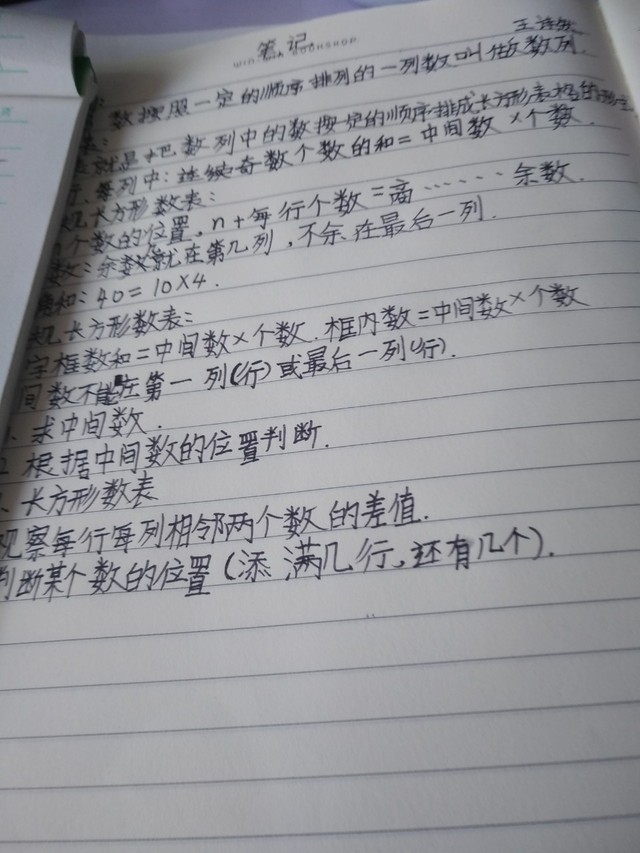 笔记
WIN BOOKSHOP
数按照一定的顺序排列的一列数叫做数列.
表:
就是把数列中的数按一定的顺序排成长方形表格的形式
行、每列中:连续奇数个数的和=中间数×个数.
规长方形数表:
个数的位置,n÷每行个数=商……余数.
数:余数就在第几列,不余在最后一列.
和:40=10×4.
规长方形数表:
字框数和=中间数×个数.框内数=中间数×个数
间数不能在第一列(行)或最后一列(行).
、求中间数.
2.根据中间数的位置判断.
、长方形数表
观察每行每列相邻两个数的差值.
判断某个数的位置(添满几行,还有几个).